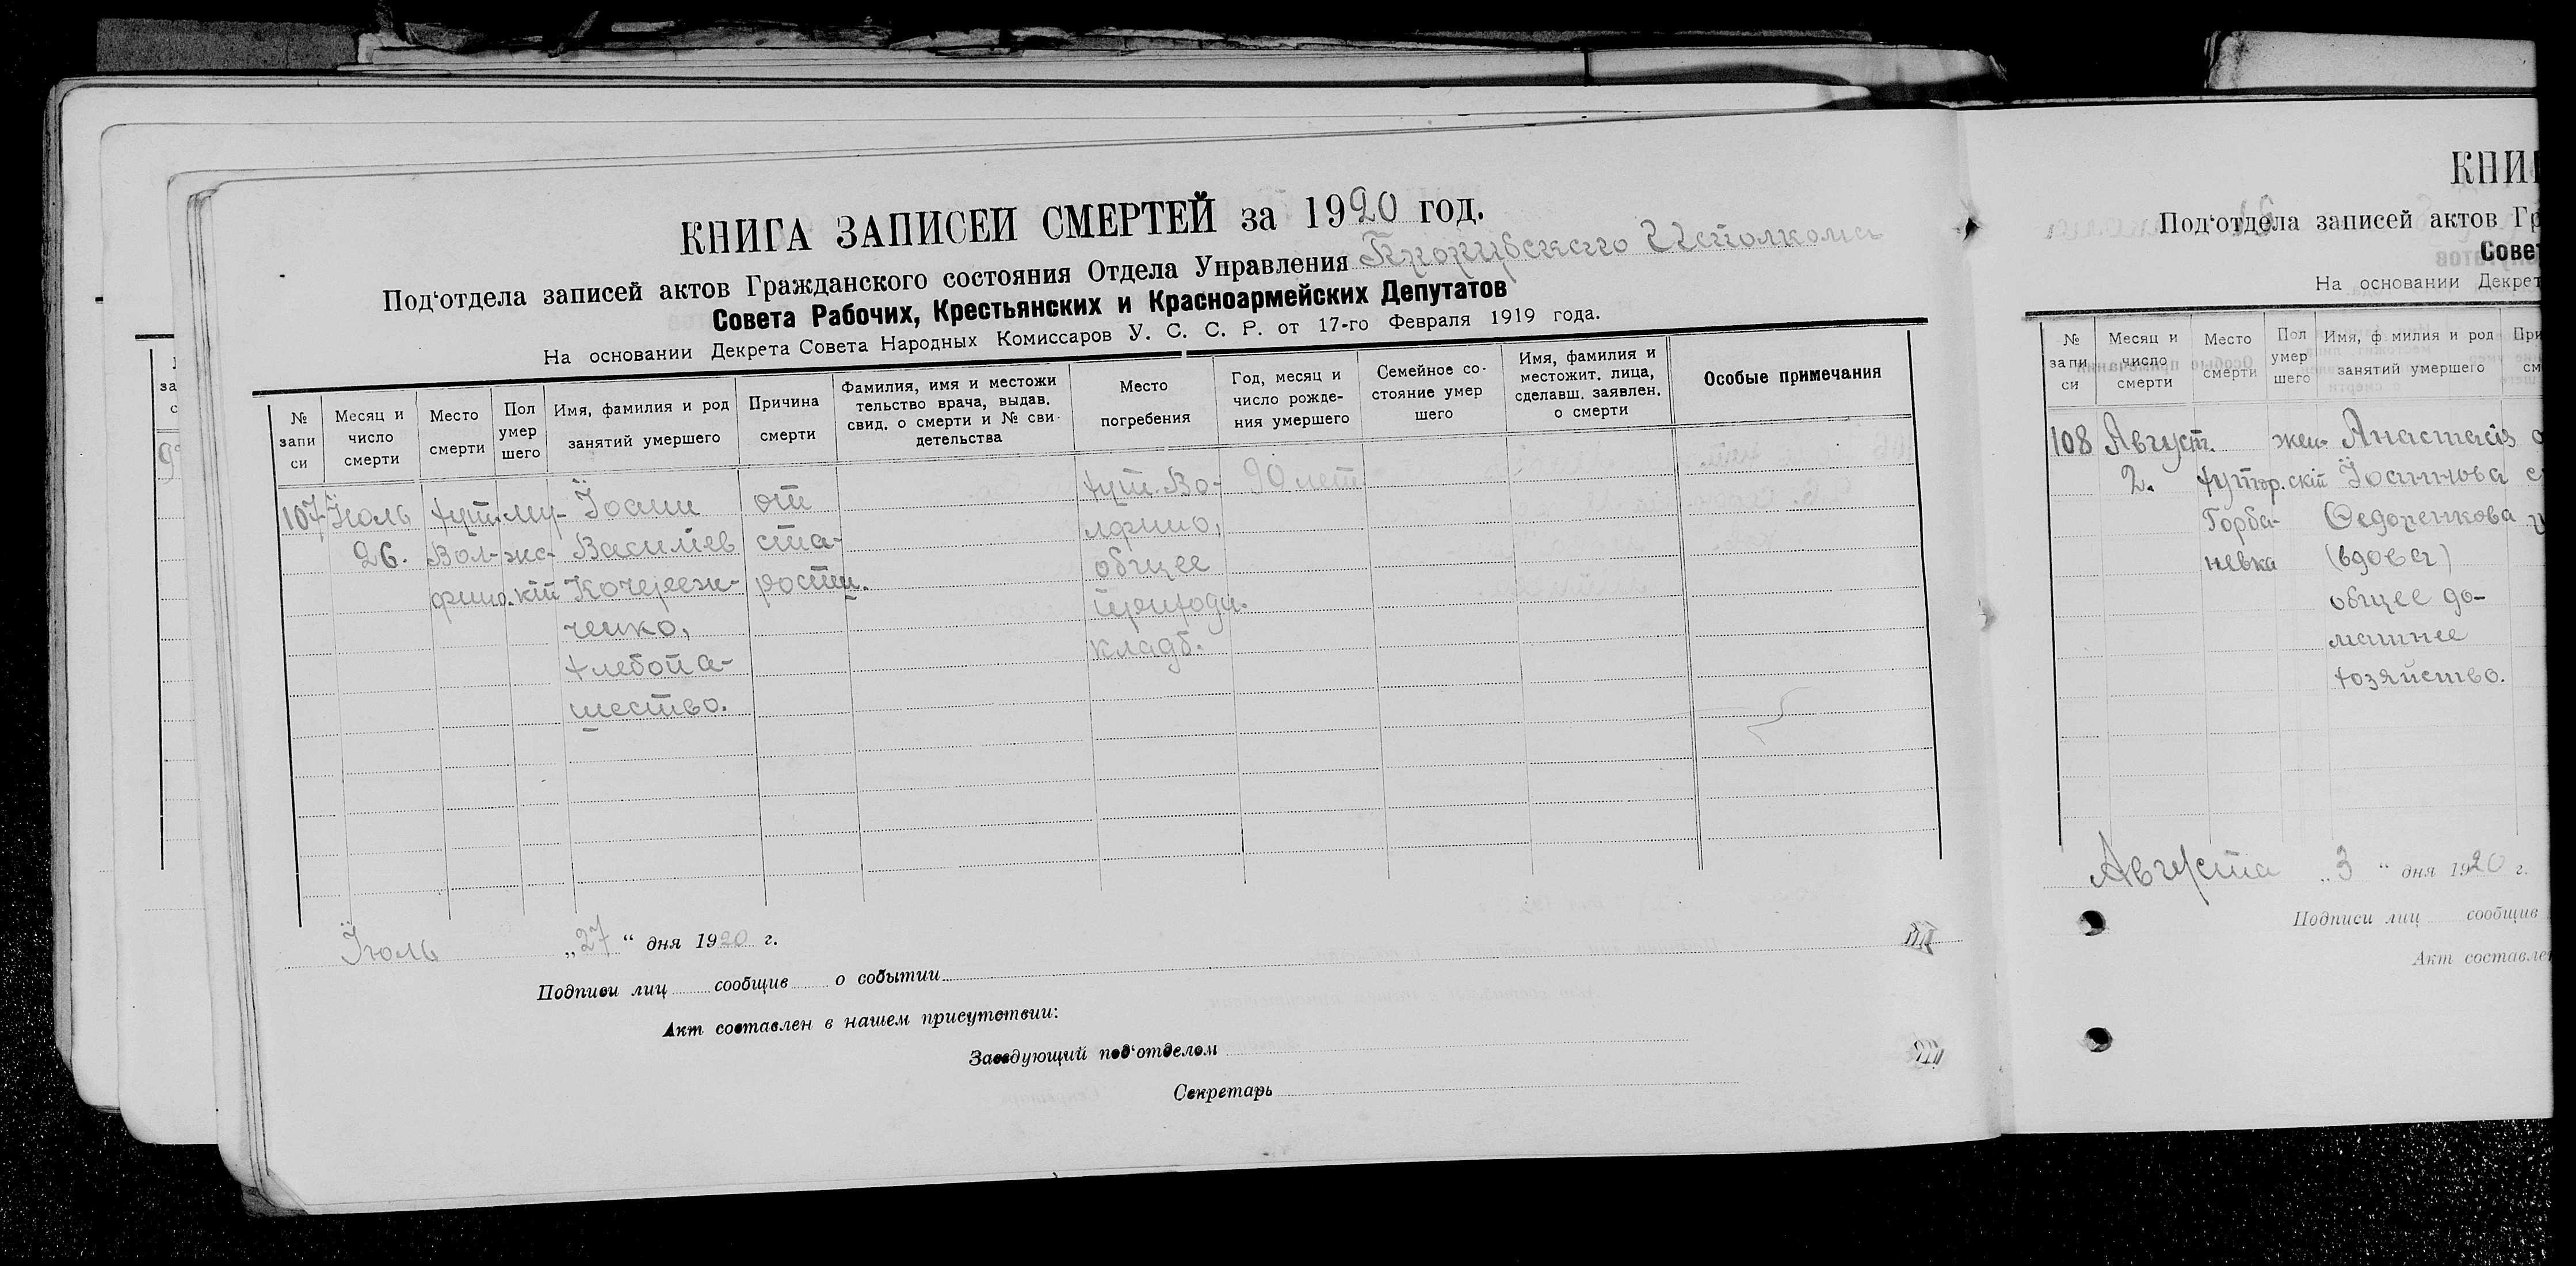 КНИГА ЗАПИСЕЙ СМЕРТЕЙ за 1920 год.
Под‘отдела записей актов Гражданского состояния Отдела Управления Исполкома
Совета Рабочих, Крестьянских и Красноармейских Депутатов
На основании Декрета Совета Народных Комиссаров У. С. С. Р. от 17-го Февраля 1919 года.
№ запи си
Месяц и число смерти
Место смерти
Пол умер шего
Имя, фамилия и род занятий умершего
Причина смерти
Фамилия, имя и местожи тельство врача, выдав. свид. о смерти и № сви- детельства
Место погребения
Год, месяц и число рожде- ния умершего
Семейное со- стояние умер шего
Имя, фамилия и местожит. лица, сделавш. заявлен. о смерти
Особые примечания
107 Їюль хут. му- Їоанн от хут. Во- 90 лет
26. Вол- жс- Василіев ста- лфино,
фино. кій рости. общее
ченко, приходс.
хлебопа- кладб.
шество.
Їюль „27“ дня 1920 г.
Подписи лиц сообщив о событии
Акт составлен в нашем присутствии:
Заведующий под‘отделом
Секретарь
КНИГ
Под‘отдела записей актов Гр
Совет
На основании Декрет
№ запи си
Месяц и число смерти
Место смерти
Пол умер шего
Имя, ф милия и род занятий умершего
При см
108 Август. жен- Анастасія
2. хутор. скій Їоаннова
Горба- Федоренкова
невка (вдова)
общее до-
машнее
хозяйство.
Августа „3“ дня 1920 г.
Подписи лиц сообщив
Акт составлен